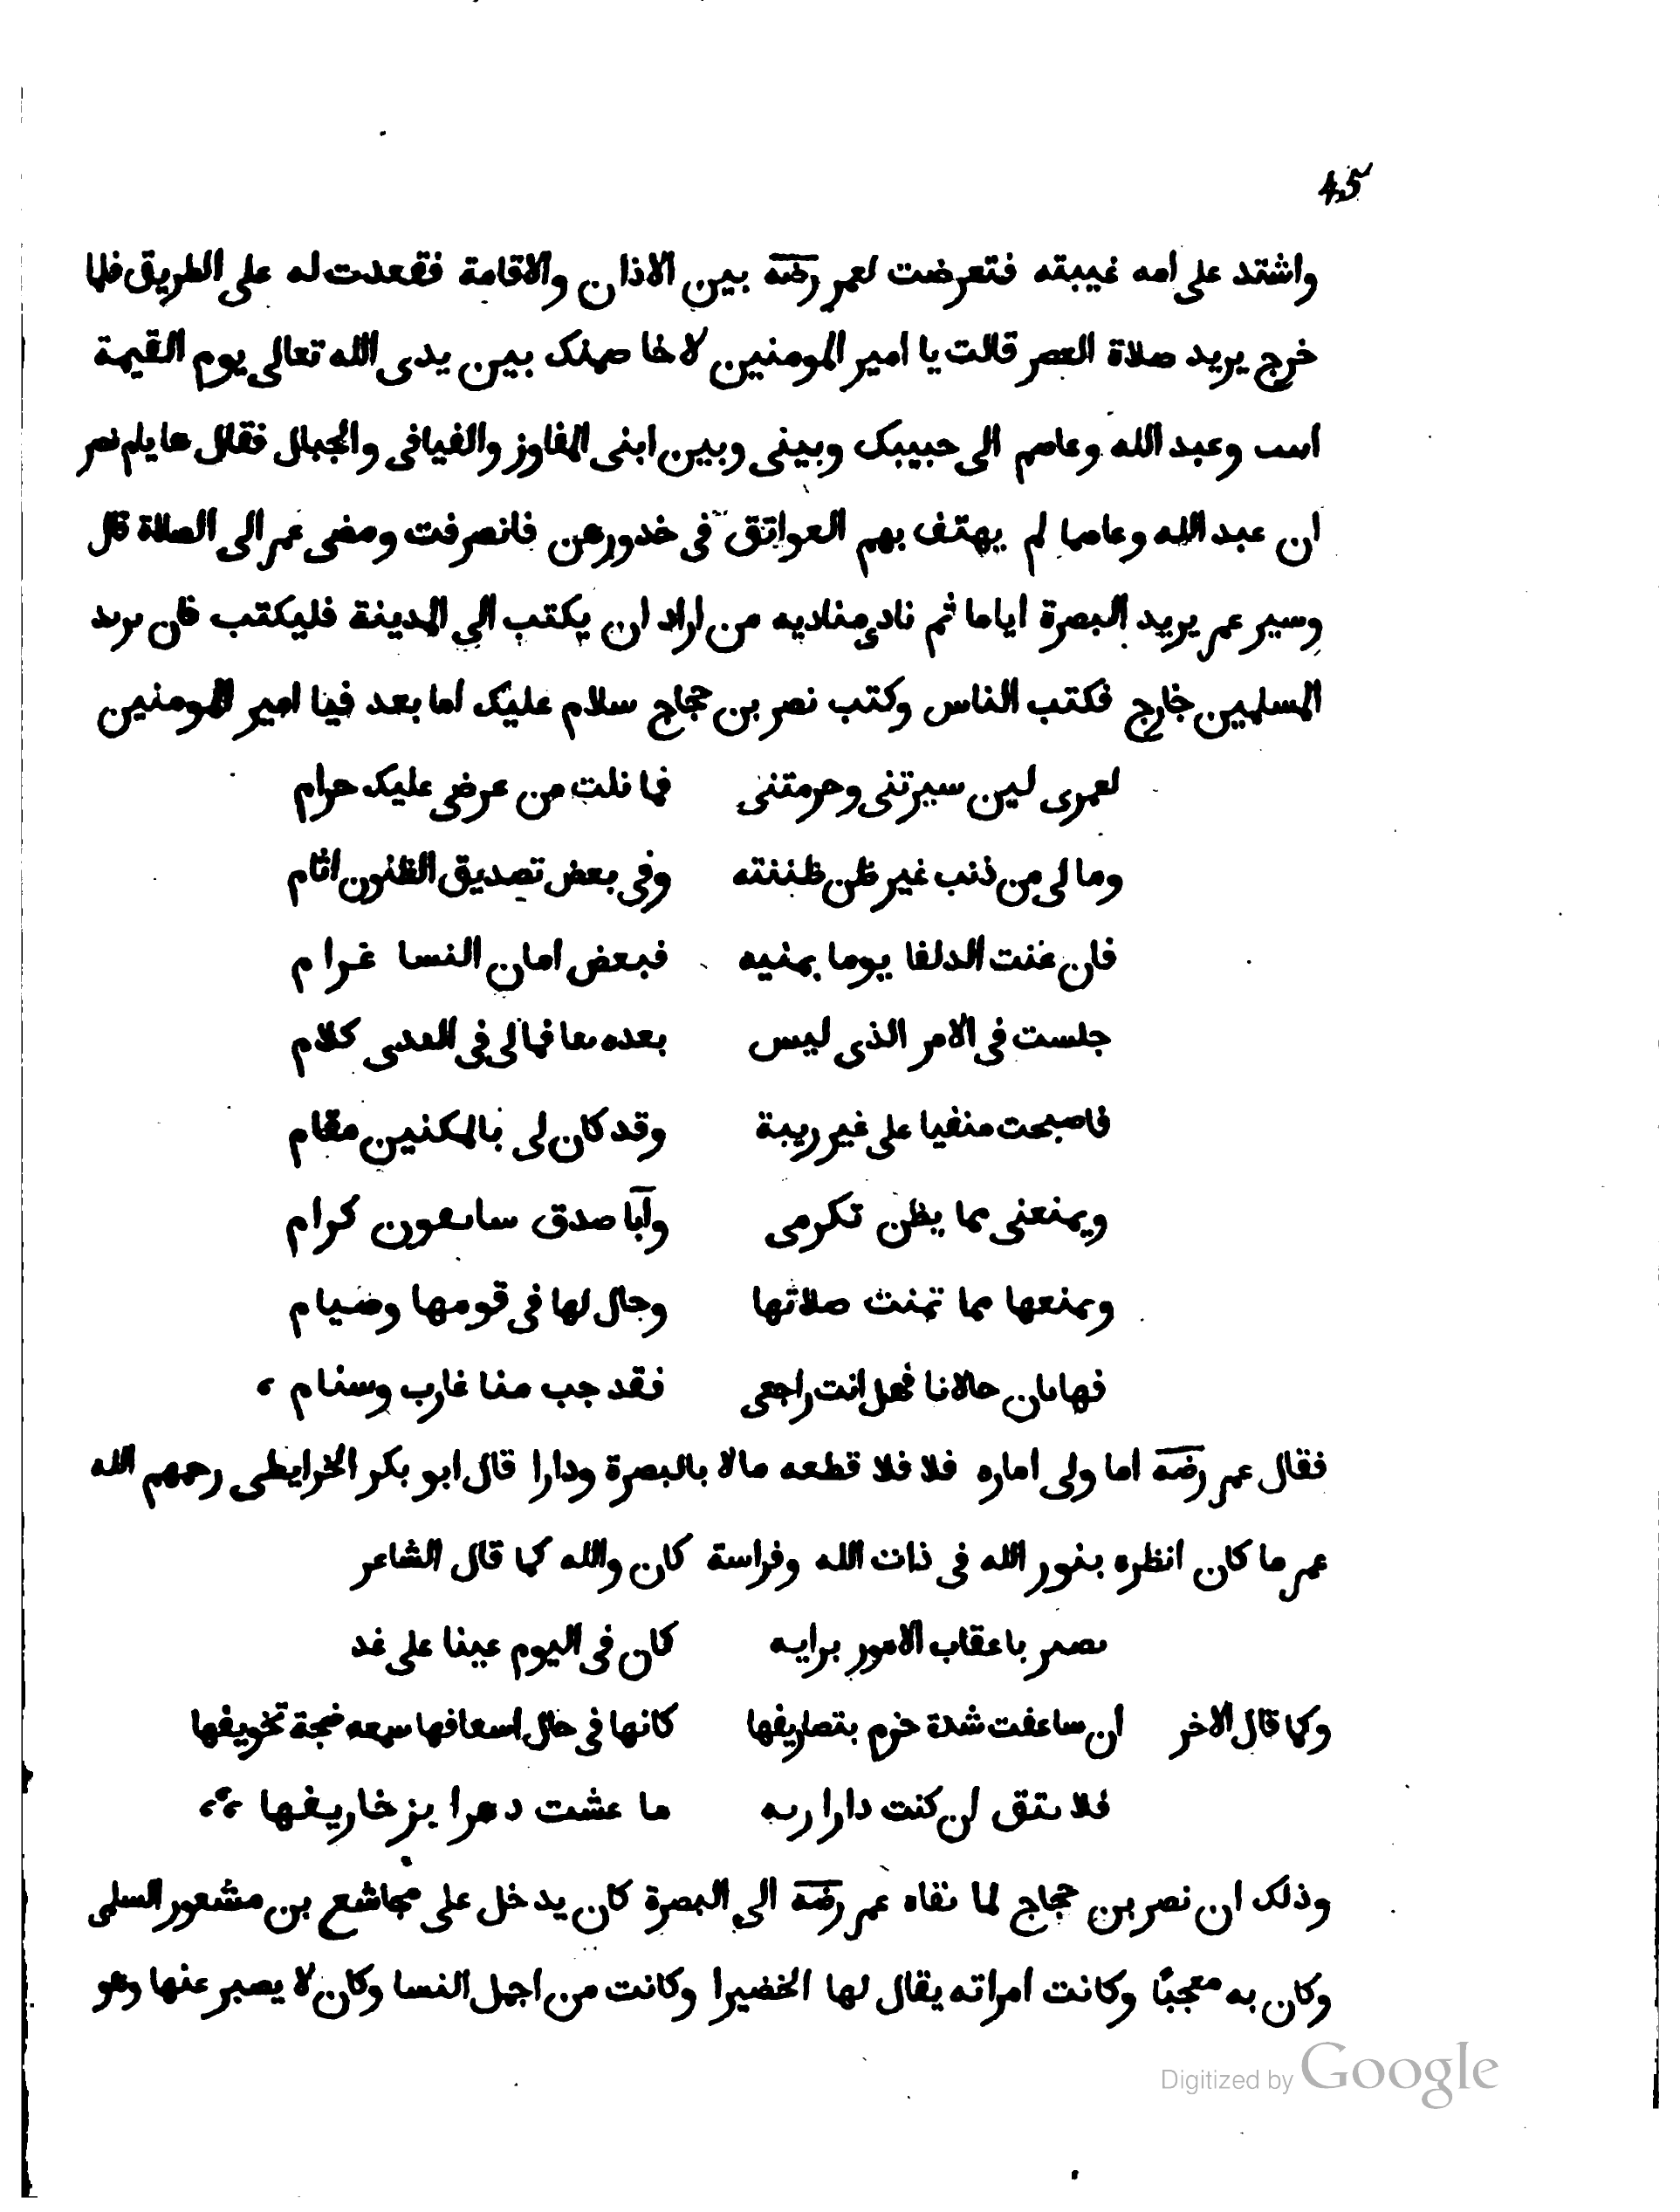 45
واشتد على امه غيبته فتعرضت لعمر رضه بين الاذان والاقامة فقعدت له على الطريق فلما
خرج يريد صلاة العصر قالت يا امير المومنين لاخاصمنك بين يدى الله تعالى يوم القيمة
اسب وعبد الله وعاصم الى حبيبك وبينى وبين ابنى المفاوز والفيافى والجبال فقال هايلم نصر
ان عبد الله وعاصما لم يهتف بهم العواتق فى خدورهن فانصرفت ومضى عمر الى الصلاة قال
وسير عمر يريد البصرة اياما ثم نادى مناديه من اراد ان يكتب الى المدينة فليكتب فان بريد
المسلمين خارج فكتب الناس وكتب نصر بن حجاج سلام عليك اما بعد فيا امير المومنين
لعمرى لين سيرتنى وحرمتنى فما نلت من عرضى عليك حرام
وما لى من ذنب غير ظن ظننته وفى بعض تصديق الظنون اثام
فان غنت الدلفا يوما بمنيه فبعض امان النسا غرام
جلست فى الامر الذى ليس بعده معا فما لى فى العدى كلام
فاصبحت منفيا على غير ريبة وقد كان لى بالمكنين مقام
ويمنعنى مما يظن تكرمى وآبا صدق سابعون كرام
ويمنعها مما تمنت صلاتها وحال لها فى قومها وضيام
فهامان حالانا فهل انت راجعى فقد جب منا غارب وسنام ،
فقال عمر رضه اما ولى اماره فلا فلا قطعه مالا بالبصرة ودارا قال ابو بكر الخرايطى رحمهم الله
عمر ما كان انظره بنور الله فى ذات الله وفراسة كان والله كما قال الشاعر
بصير باعقاب الامور برايه كان فى اليوم عينا على غد
وكما قال الاخر ان ساعفت شدة حزم بتصاريفها كانها فى حال اسعافها سمعه ضجة تخويفها
فلا يتق لن كنت دارا ربه ما عشت دهرا بزخاريفها ،،،
وذلك ان نصر بن حجاج لما نفاه عمر رضه الى البصرة كان يدخل على مجاشع بن مشعور السلمى
وكان به معجبًا وكانت امراته يقال لها الخضيرا وكانت من اجمل النسا وكان لا يصبر عنها وهو
Digitized by Google